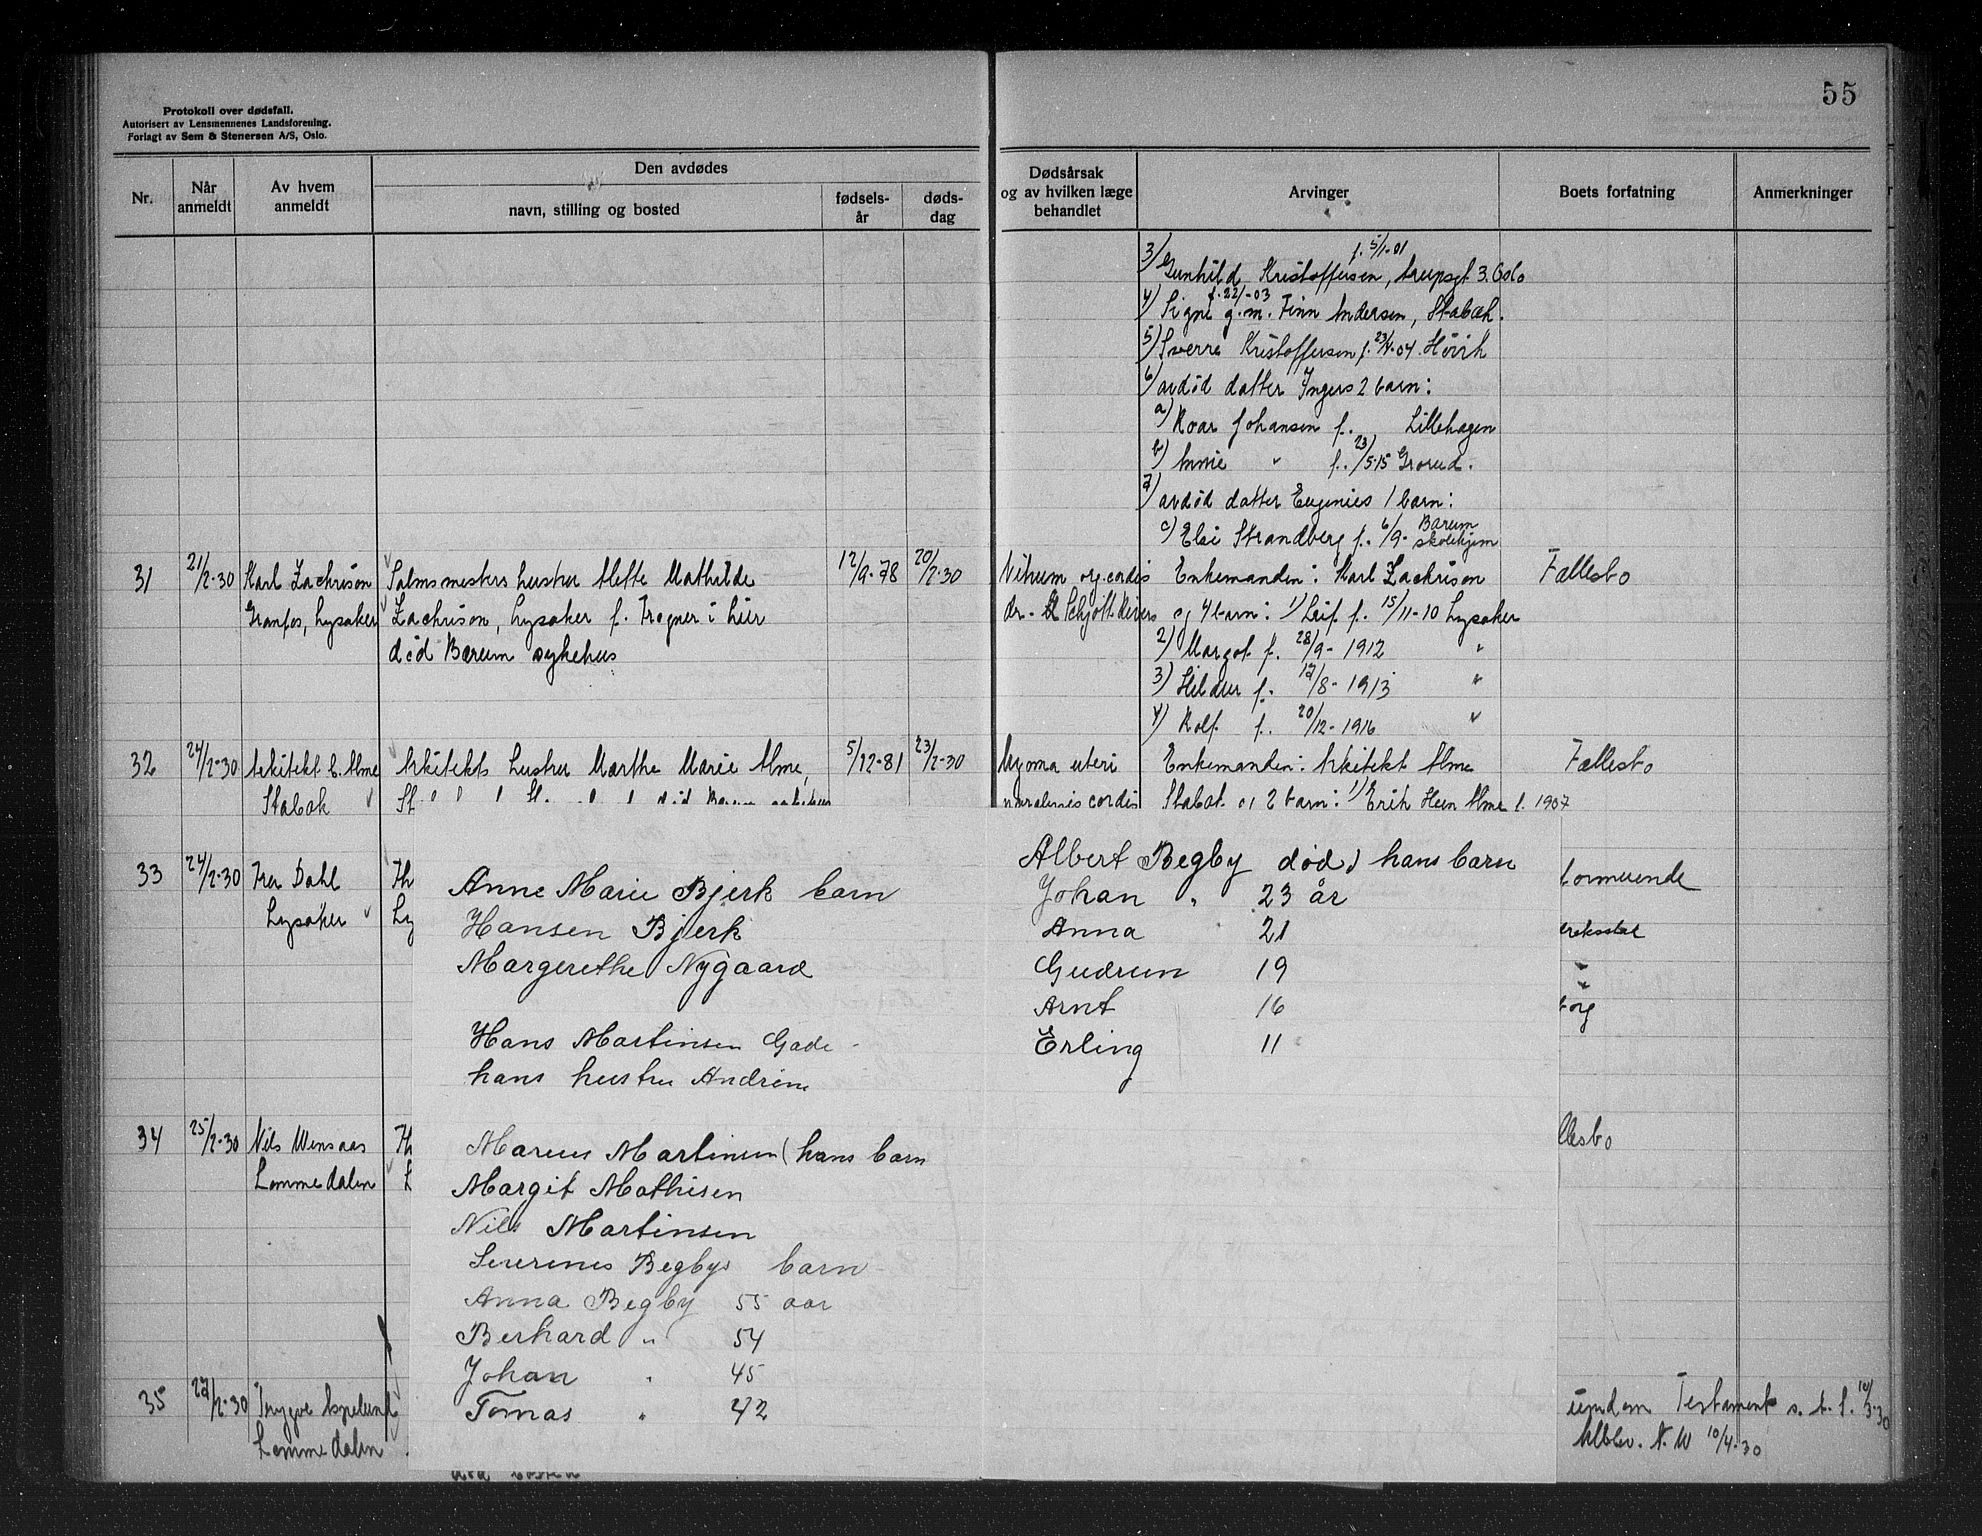 55
Protokoll over dødsfall.
Autorisert av Lensmennenes Landsforening.
Forlagt av Sem & Stenersen A/S, Oslo.
Nr.
Når anmeldt
Av hvem anmeldt
Den avdødes
navn, stilling og bosted
fødsels-år
døds-dag
Dødsårsak og av hvilken læge behandlet
Arvinger
Boets forfatning
Anmerkninger
3) Gunhild Kristoffersen, f. 5/1-01 3. Oslo
4) Signe g.m. Finn Andersen, Stabæk.
5) Sverre Kristoffersen f. 04. Høvik
6) avdød datter Ingers 2 barn:
a) Roar Johansen f. Lillehagen
b) Annie " f. 23/5-15 Grorud.
7) avdød datter Eugenies 1 barn:
c) Elsi Strandberg f. 6/9- Bærum skolehjem
31 21/2-30 Karl Zachrison Mathilde 12/9-78 20/2-30 Vitium org. cordis Enkemanden: Karl Zachrison Fællesbo
Granfos, Lysaker Zachrison, Lysaker f. Trogner i hier dr. Schjøtt og 4 barn: 1) Leif f. 15/11-10 Lysaker
død Bærum sykehus 2) Margot f. 28/9-1912 "
3) Hildur f. 17/8-1913 "
4) Rolf f. 20/12-1916 "
32 24/2-30 Arkitekt E. Alme Arkitekts hustru Marthe Marie Alme, 5/12-81 23/2-30 Myoma uteri Enkemanden: Arkitekt Alme Fællesbo
Stabæk St cordis Stabæk og 2 barn: 1) Erik Alme f. 1907
33 24/2-30 Fru Dahl Th formuende
Lysaker Ly
34 25/2-30 Nils Wensaas Th llesbo
Lommedalen L
35 27/2-30 Trygve
Lommedalen
Testament s. t. l. 10/3-30
N. W 10/4-30
Anne Marie Bjerk barn
Hansen Bjerk
Margerethe Nygaard
Hans Martinsen Gade
hans hustru Andrine
Marius Martinsen (hans barn
Margit Mathisen
Nils Martinsen
Severines Begbys barn
Anna Begby 55 aar
Berhard " 54
Johan " 45
Tomas " 42
død bosted
Albert Begby død) hans barn
Johan " 23 år
Anna 21
Gudrun 19
Arnt 16
Erling 11